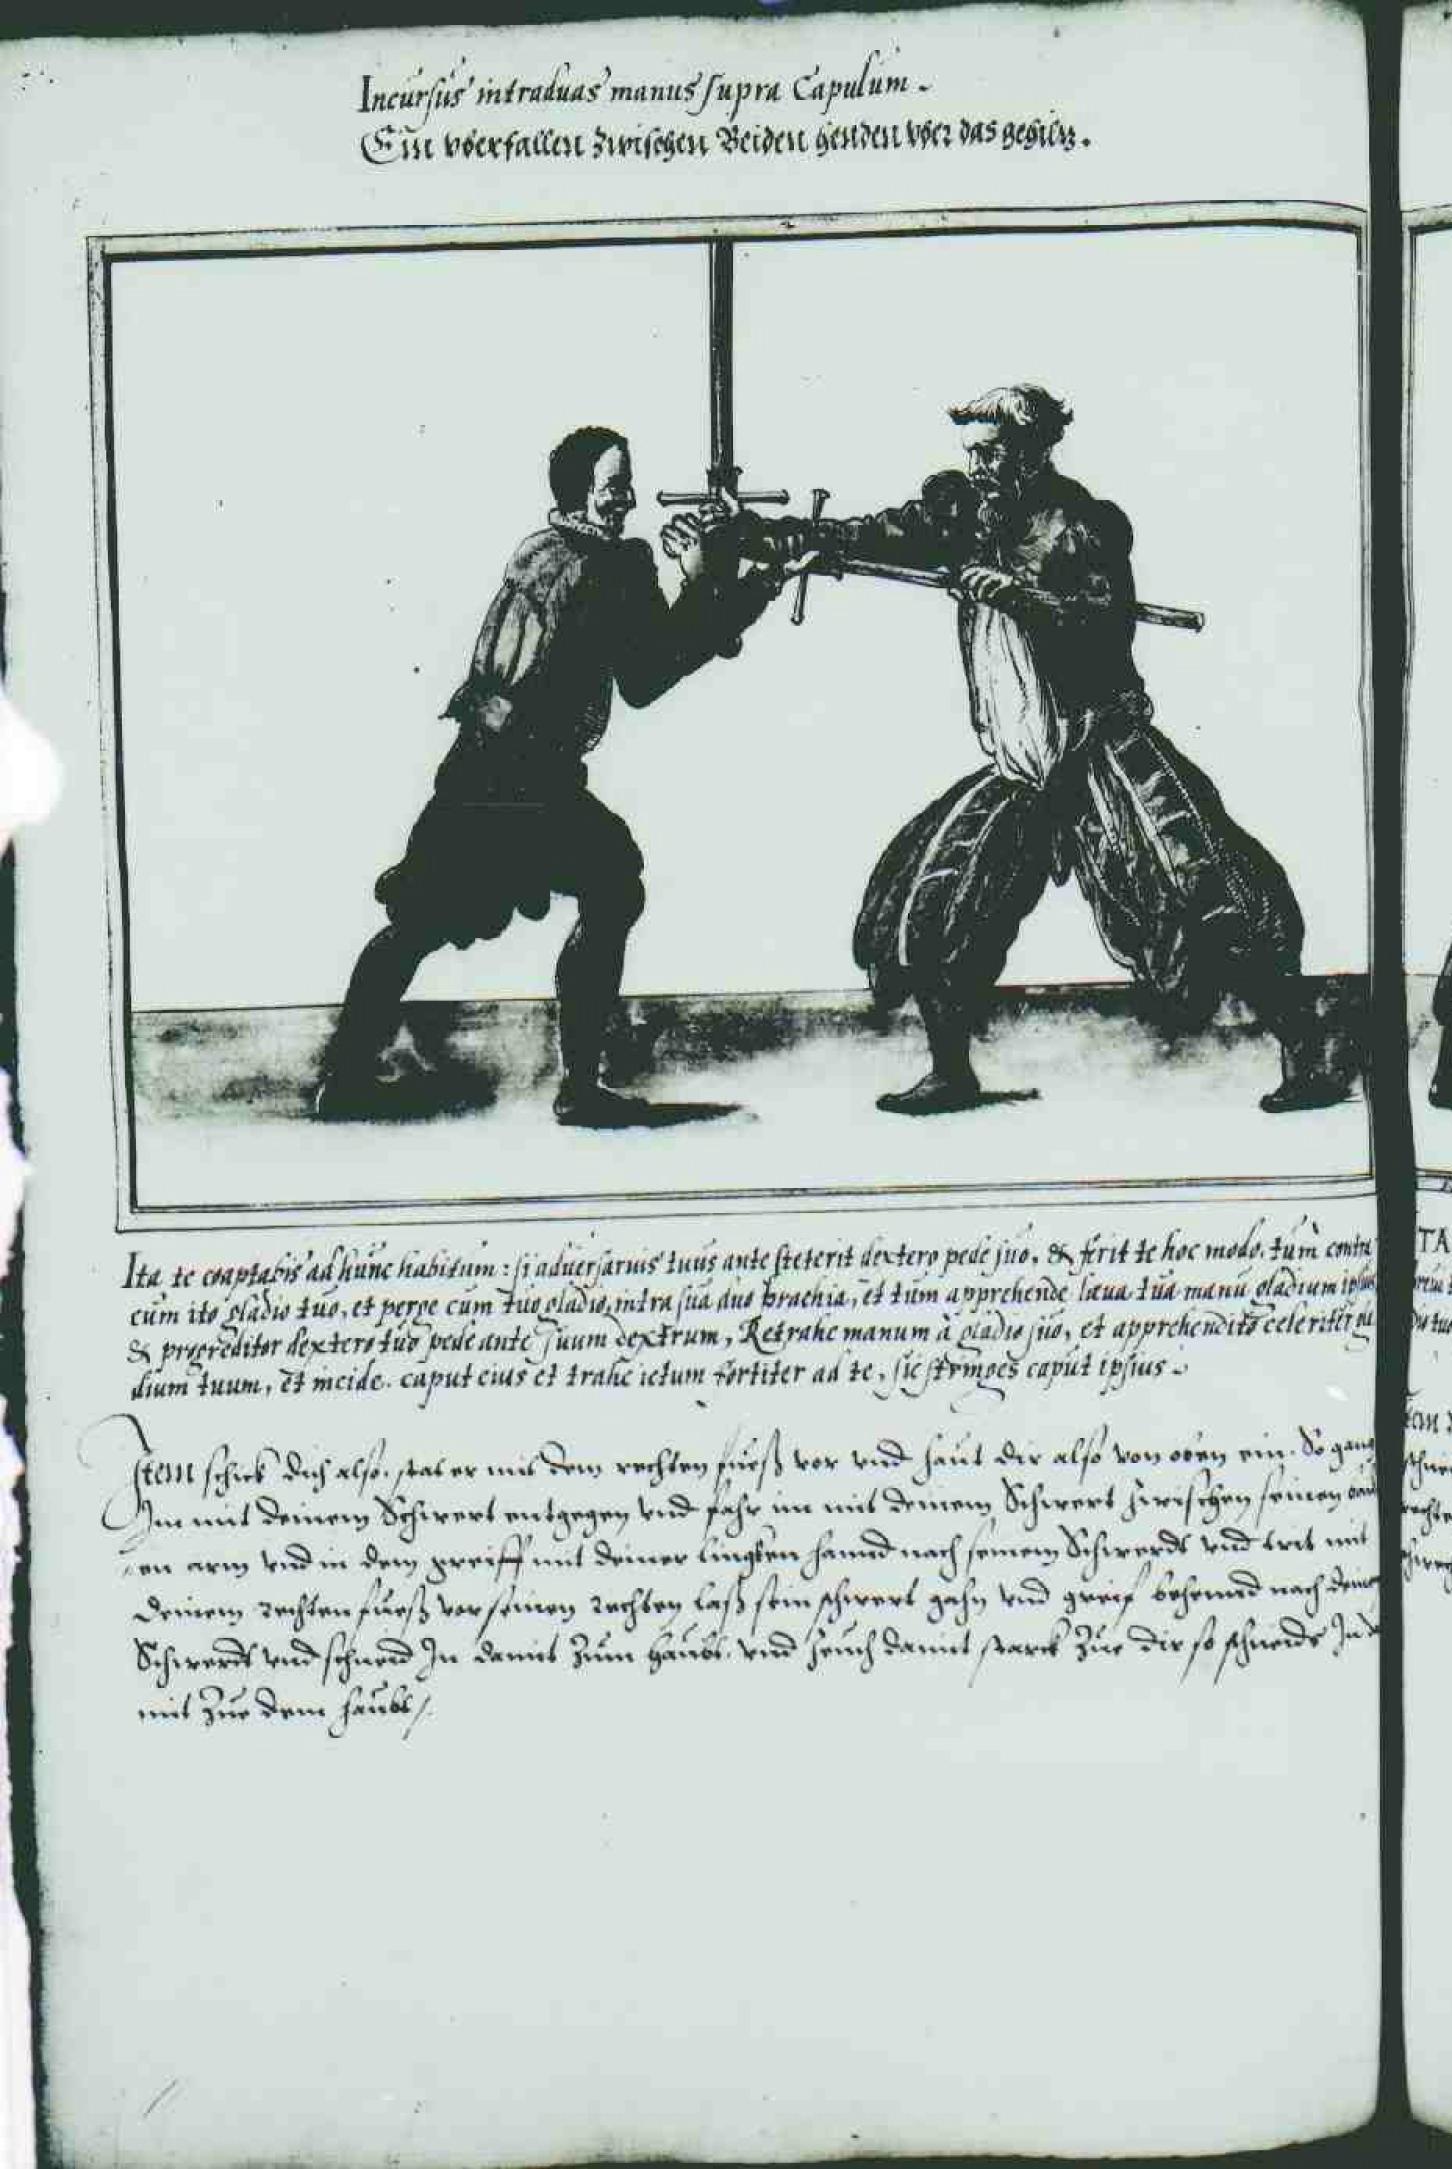 Incursus intraduas manus supra Capulum.
Ein vberfallen zwischen Beiden henden vber das gehiltz.
Ita te coaptabis ad hunc habitum: si adversarius tuus ante steterit dextero pede suo, & ferit te hoc modo, tum contra
eum ito gladio tuo, et perge cum tuo gladio, intra sua duo brachia, et tum apprehende laeva tua manu gladium ipsius
& progreditor dextero tuo pede ante suum dextrum, Retrahe manum à gladio suo, et apprehendito celeriter gla
dium tuum, et incide caput eius et trahe ictum fortiter ad te, sic stringes caput ipsius.
Item schick dich also, stat er mit dem rechten fueß vor vnd haut dir also von oben ein. So gang
Im mit deinem Schwert entgegen vnd fahr im mit deinem Schwert zwischen seinen baid
en arm vnd in dem greiff mit deiner lingken hannd nach seinem Schwerdt vnd trit mit
deinem rechten fueß vor seinen rechten laß sein schwert gahn vnd greif behennd nach deine
Schwerdt vnd schneid In damit zum haubt. vnd zeuch damit starck zue dir so schneidt In
mit zue dem haubt
TA